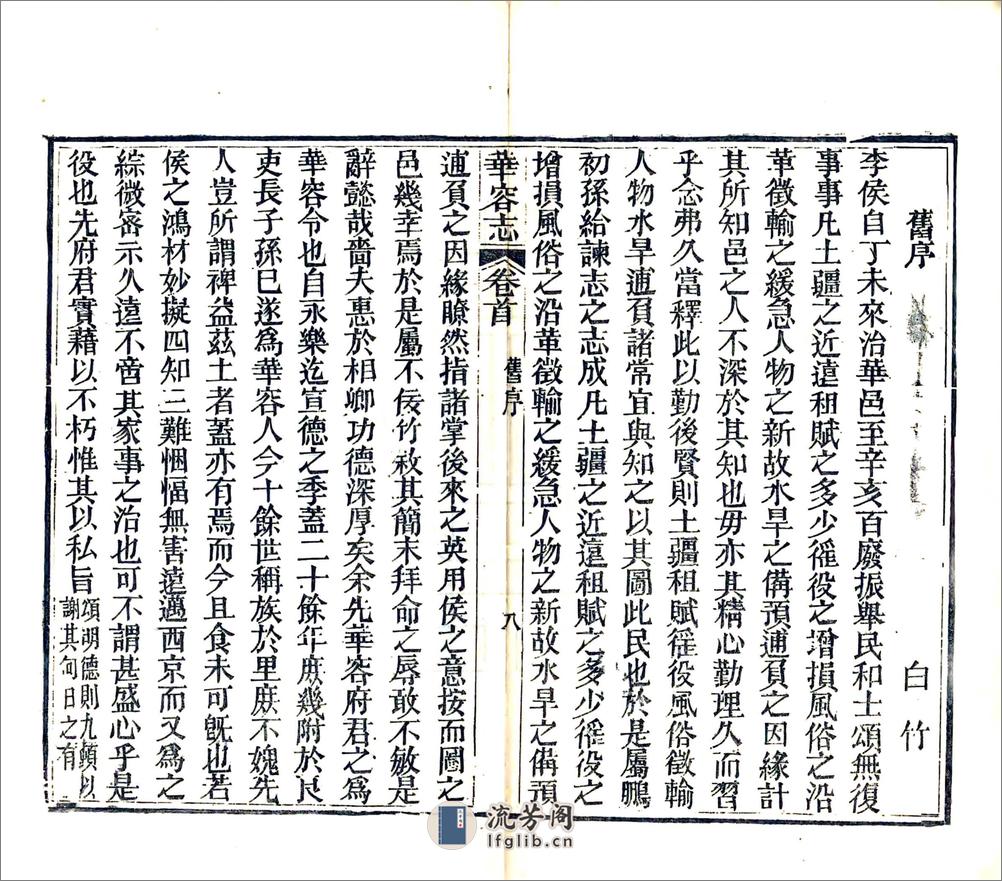 舊序
白竹
李侯自丁未來治華邑至辛亥百廢振舉民和士頌無復
事事凡土疆之近遠租賦之多少徭役之增損風俗之沿
革徵輸之緩急人物之新故水旱之備預逋負之因緣計
其所知邑之人不深於其知也毋亦其精心勤理久而習
乎念弗久當釋此以勤後賢則土疆租賦徭役風俗徵輸
人物水旱逋負諸常宜與知之以其圖此民也於是屬鵬
初孫給諫志之志成凡土疆之近遠租賦之多少徭役之
增損風俗之沿革徵輸之緩急人物之新故水旱之備預
華容志
卷首
舊序
八
逋負之因緣瞭然指諸掌後來之英用侯之意按而圖之
邑幾幸焉於是屬不佞竹敘其簡末拜命之辱敢不敏是
辭懿哉嗇夫惠於相卿功德深厚矣余先華容府君之為
華容令也自永樂迄宣德之季蓋二十餘年庶幾附於良
吏長子孫巳遂為華容人今十餘世稱族於里庶不媿先
人豈所謂裨益茲土者蓋亦有焉而今且食未可旣也若
侯之鴻材妙擬四知三難悃愊無害遠邁西京而又為之
綜微密示久遠不啻其家事之治也可不謂甚盛心乎是
役也先府君實藉以不朽惟其以私旨
頌明德則九頓以
謝其旬日之有
流芳阁
lfglib.cn